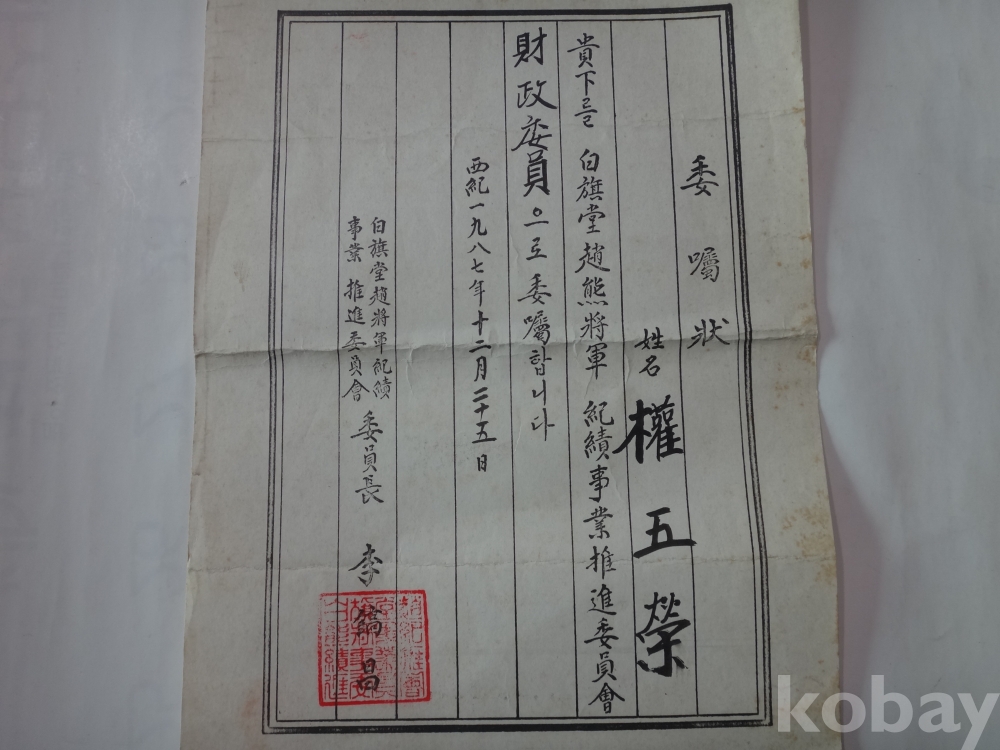 委囑狀
姓名 權五榮
貴下를 白旗堂趙熊將軍 紀績事業推進委員會
財政委員으로 委囑합니다
西紀一九八七年十二月二十五日
白旗堂趙將軍紀績
事業推進委員會
委員長 李鎬昌
kobay